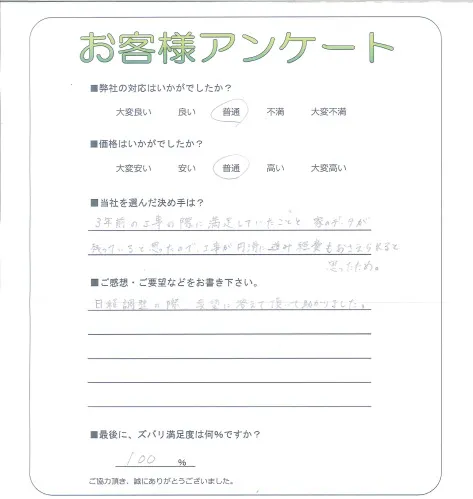 お客様アンケート
■弊社の対応はいかがでしたか？
大変良い 良い 普通 不満 大変不満
■価格はいかがでしたか？
大変安い 安い 普通 高い 大変高い
■当社を選んだ決め手は？
3年前の工事の際に満足していたことと 家のデータが
残っていると思ったので、工事が円滑に進み 経費もおさえられると
思ったため。
■ご感想・ご要望などをお書き下さい。
日程調整の際 希望に 頂いて助かりました。
■最後に、ズバリ満足度は何%ですか？
100 %
ご協力頂き、誠にありがとうございました。